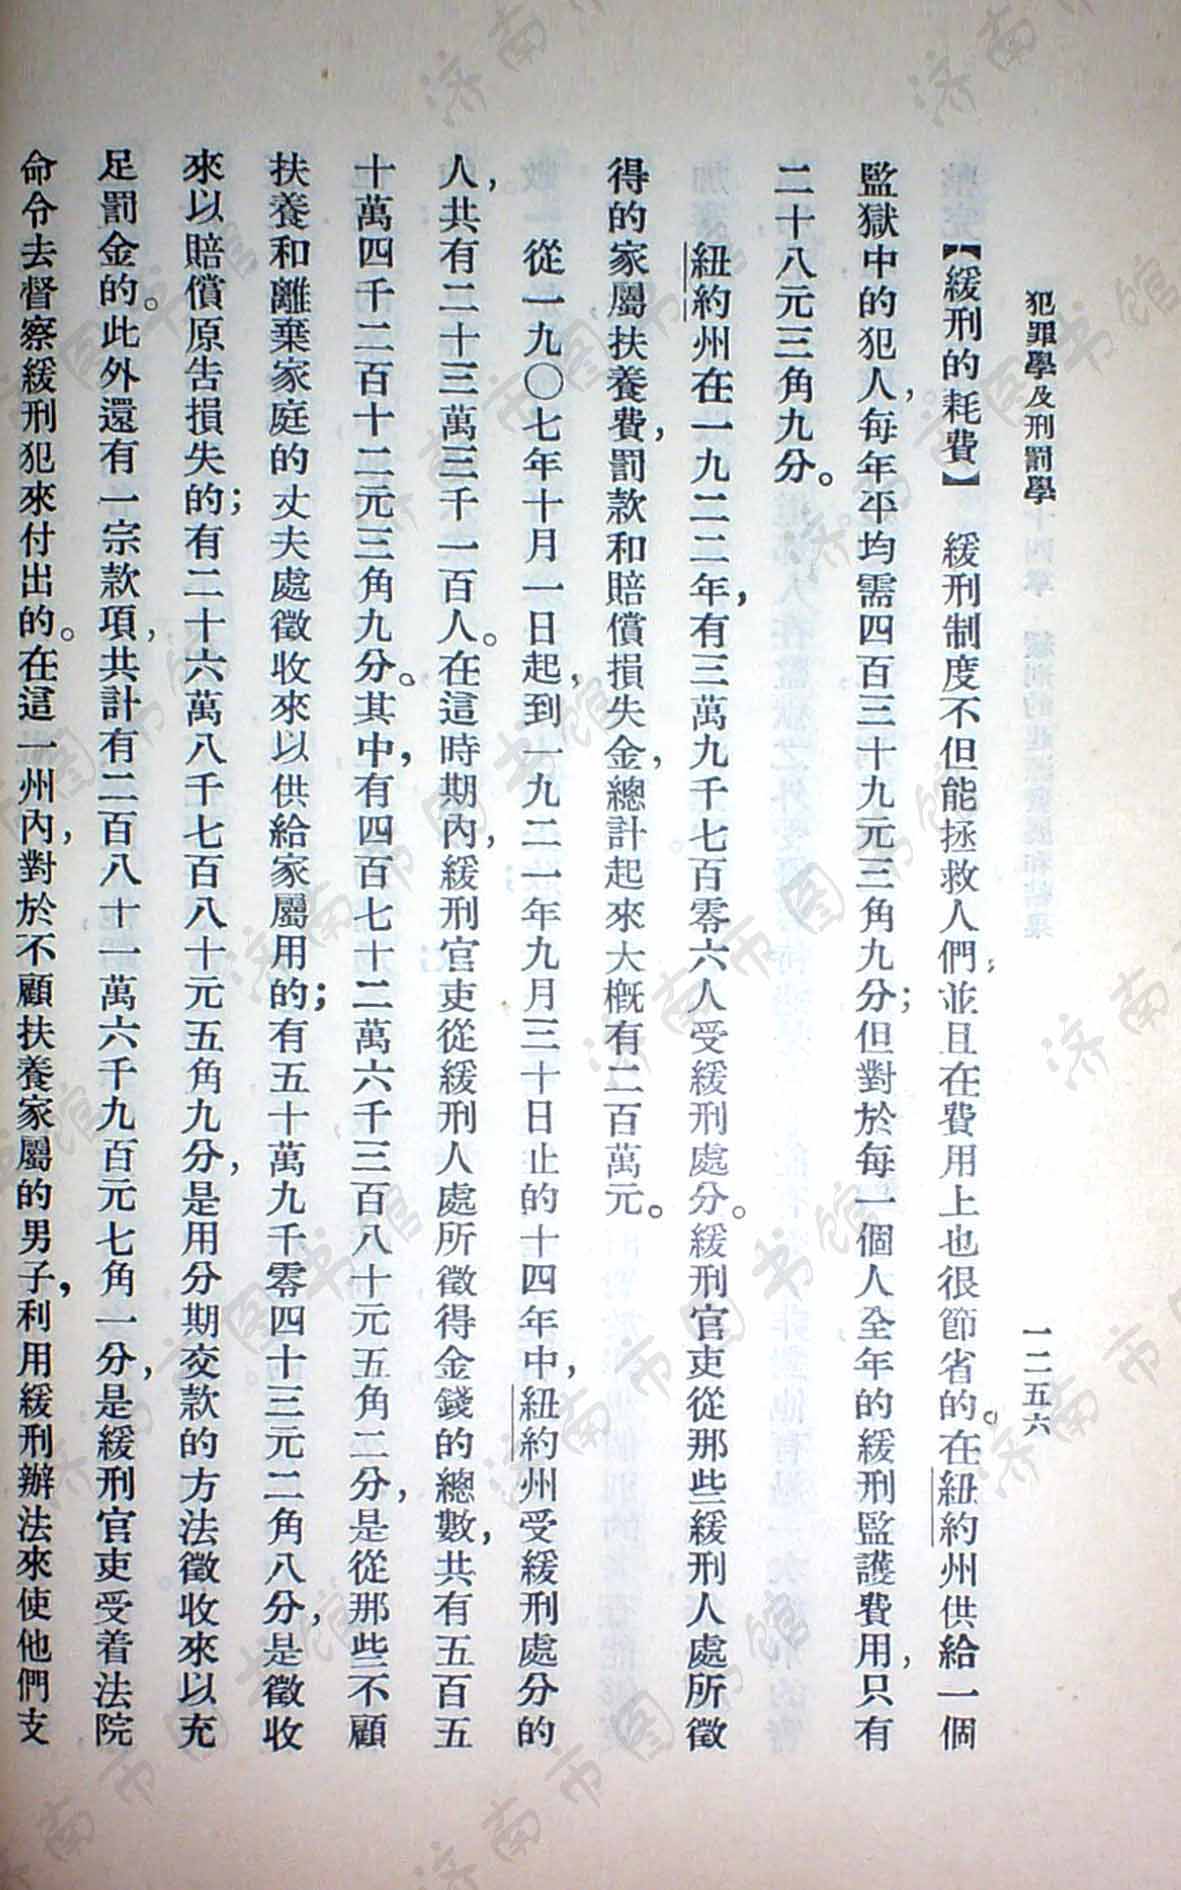 犯罪學及刑罰學
一二五六
【緩刑的耗費】　緩刑制度不但能拯救人們，並且在費用上也很節省的。在紐約州供給一個
監獄中的犯人，每年平均需四百三十九元三角九分；但對於每一個人全年的緩刑監護費用，只有
二十八元三角九分。
紐約州在一九二二年，有三萬九千七百零六人受緩刑處分。緩刑官吏從那些緩刑人處所徵
得的家屬扶養費，罰款和賠償損失金，總計起來大概有二百萬元。
從一九〇七年十月一日起，到一九二一年九月三十日止的十四年中，紐約州受緩刑處分的
人，共有二十三萬三千一百人。在這時期內，緩刑官吏從緩刑人處所徵得金錢的總數，共有五百五
十萬四千二百十二元三角九分。其中，有四百七十二萬六千三百八十元五角二分，是從那些不顧
扶養和離棄家庭的丈夫處徵收來以供給家屬用的；有五十萬九千零四十三元二角八分，是徵收
來以賠償原告損失的；有二十六萬八千七百八十元五角九分，是用分期交款的方法徵收來以充
足罰金的。此外還有一宗款項，共計有二百八十一萬六千九百元七角一分，是緩刑官吏受着法院
命令去督察緩刑犯來付出的。在這一州內，對於不顧扶養家屬的男子，利用緩刑辦法來使他們支